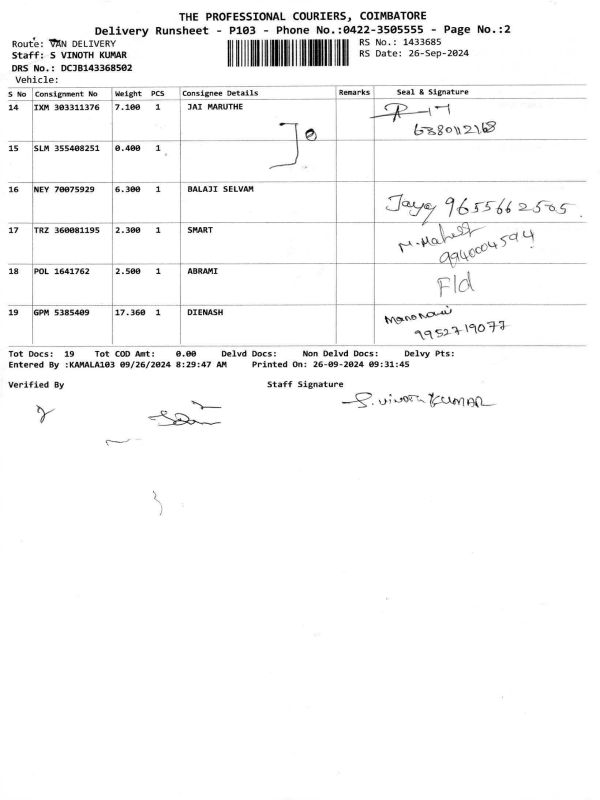 THE PROFESSIONAL COURIERS, COIMBATORE
Delivery Runsheet - P103 - Phone No.:0422-3505555 - Page No.:2
Route: VAN DELIVERY RS No.: 1433685
Staff: S VINOTH KUMAR RS Date: 26-Sep-2024
DRS No.: DCJB143368502
Vehicle:
S No Consignment No Weight PCS Consignee Details Remarks Seal & Signature
14 IXM 303311376 7.100 1 JAI MARUTHE
6380112168
15 SLM 355408251 0.400 1
16 NEY 70075929 6.300 1 BALAJI SELVAM
Jaya 9655662505
17 TRZ 360081195 2.300 1 SMART
9940004594
18 POL 1641762 2.500 1 ABRAMI
F/d
19 GPM 5385409 17.360 1 DIENASH
9952719077
Tot Docs: 19 Tot COD Amt: 0.00 Delvd Docs: Non Delvd Docs: Delvy Pts:
Entered By :KAMALA103 09/26/2024 8:29:47 AM Printed On: 26-09-2024 09:31:45
Verified By Staff Signature
S. VINOTH KUMAR